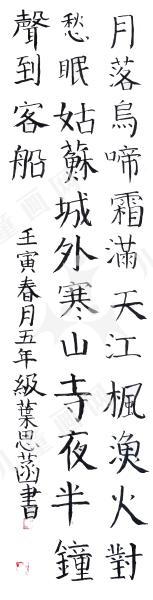 月落烏啼霜滿天江楓漁火對
愁眠姑蘇城外寒山寺夜半鐘
聲到客船
壬寅春月五年級葉思菡書